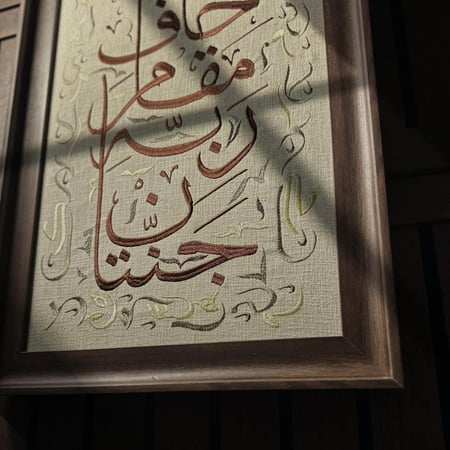 خاف
مقام
ربه
جنتان